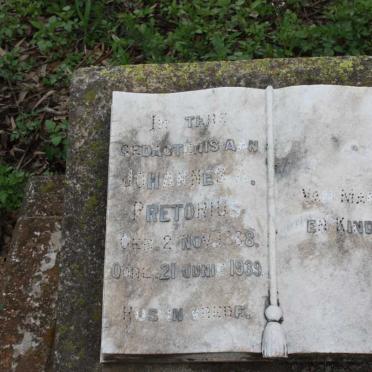 In
Gedagtenis aan
Johannes
Pretorius
Geb. 2 Nov.
Oorl. 21 Junie 1939
Rus in Vrede.
Van
en